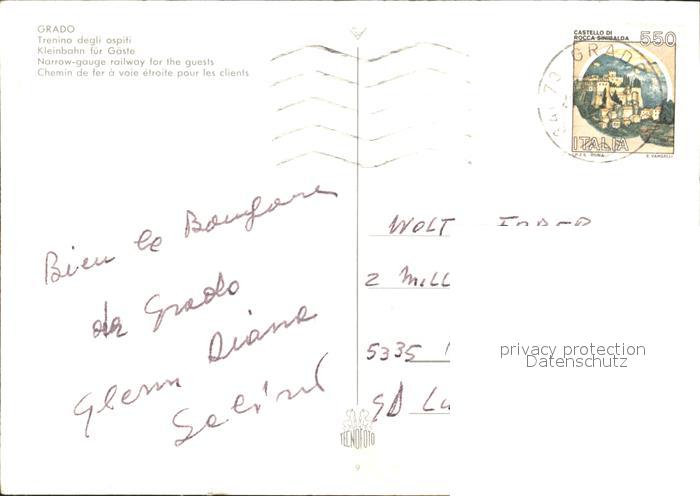 GRADO
Trenino degli ospiti
Kleinbahn für Gäste
Narrow-gauge railway for the guests
Chemin de fer à voie étroite pour les clients
CASTELLO DI
ROCCA SINIBALDA
550
GRADO
ITALIA
I.P.Z.S. ROMA
E. VANGELLI
Bien le Bonjour
da Grado
Glenn Diana
WOLT
2 MILL
5335
GD Lu
privacy protection
Datenschutz
TECNOFOTO
9